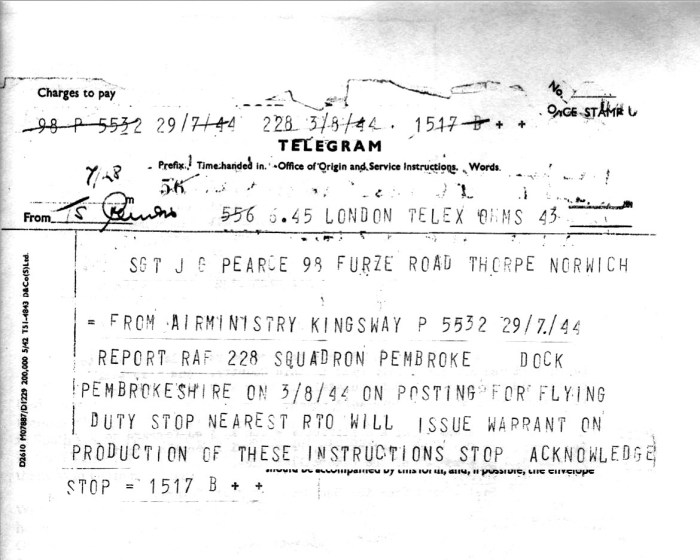 Charges to pay
No.
OFFICE STAMP
98 P 5532 29/7/44 228 3/8/44 . 1517 B + +
TELEGRAM
Prefix. Time handed in. Office of Origin and Service Instructions. Words.
7/28
56
From TS
556 6.45 LONDON TELEX OHMS 43
SGT J G PEARCE 98 FURZE ROAD THORPE NORWICH
= FROM AIRMINISTRY KINGSWAY P 5532 29/7/44
REPORT RAF 228 SQUADRON PEMBROKE DOCK
PEMBROKESHIRE ON 3/8/44 ON POSTING FOR FLYING
DUTY STOP NEAREST RTO WILL ISSUE WARRANT ON
PRODUCTION OF THESE INSTRUCTIONS STOP ACKNOWLEDGE
should be accompanied by this form, and, if possible, the envelope
STOP = 1517 B + +
D2610 M07887/D1229 200,000 5/42 T51-4843 D&Co(S)Ltd.